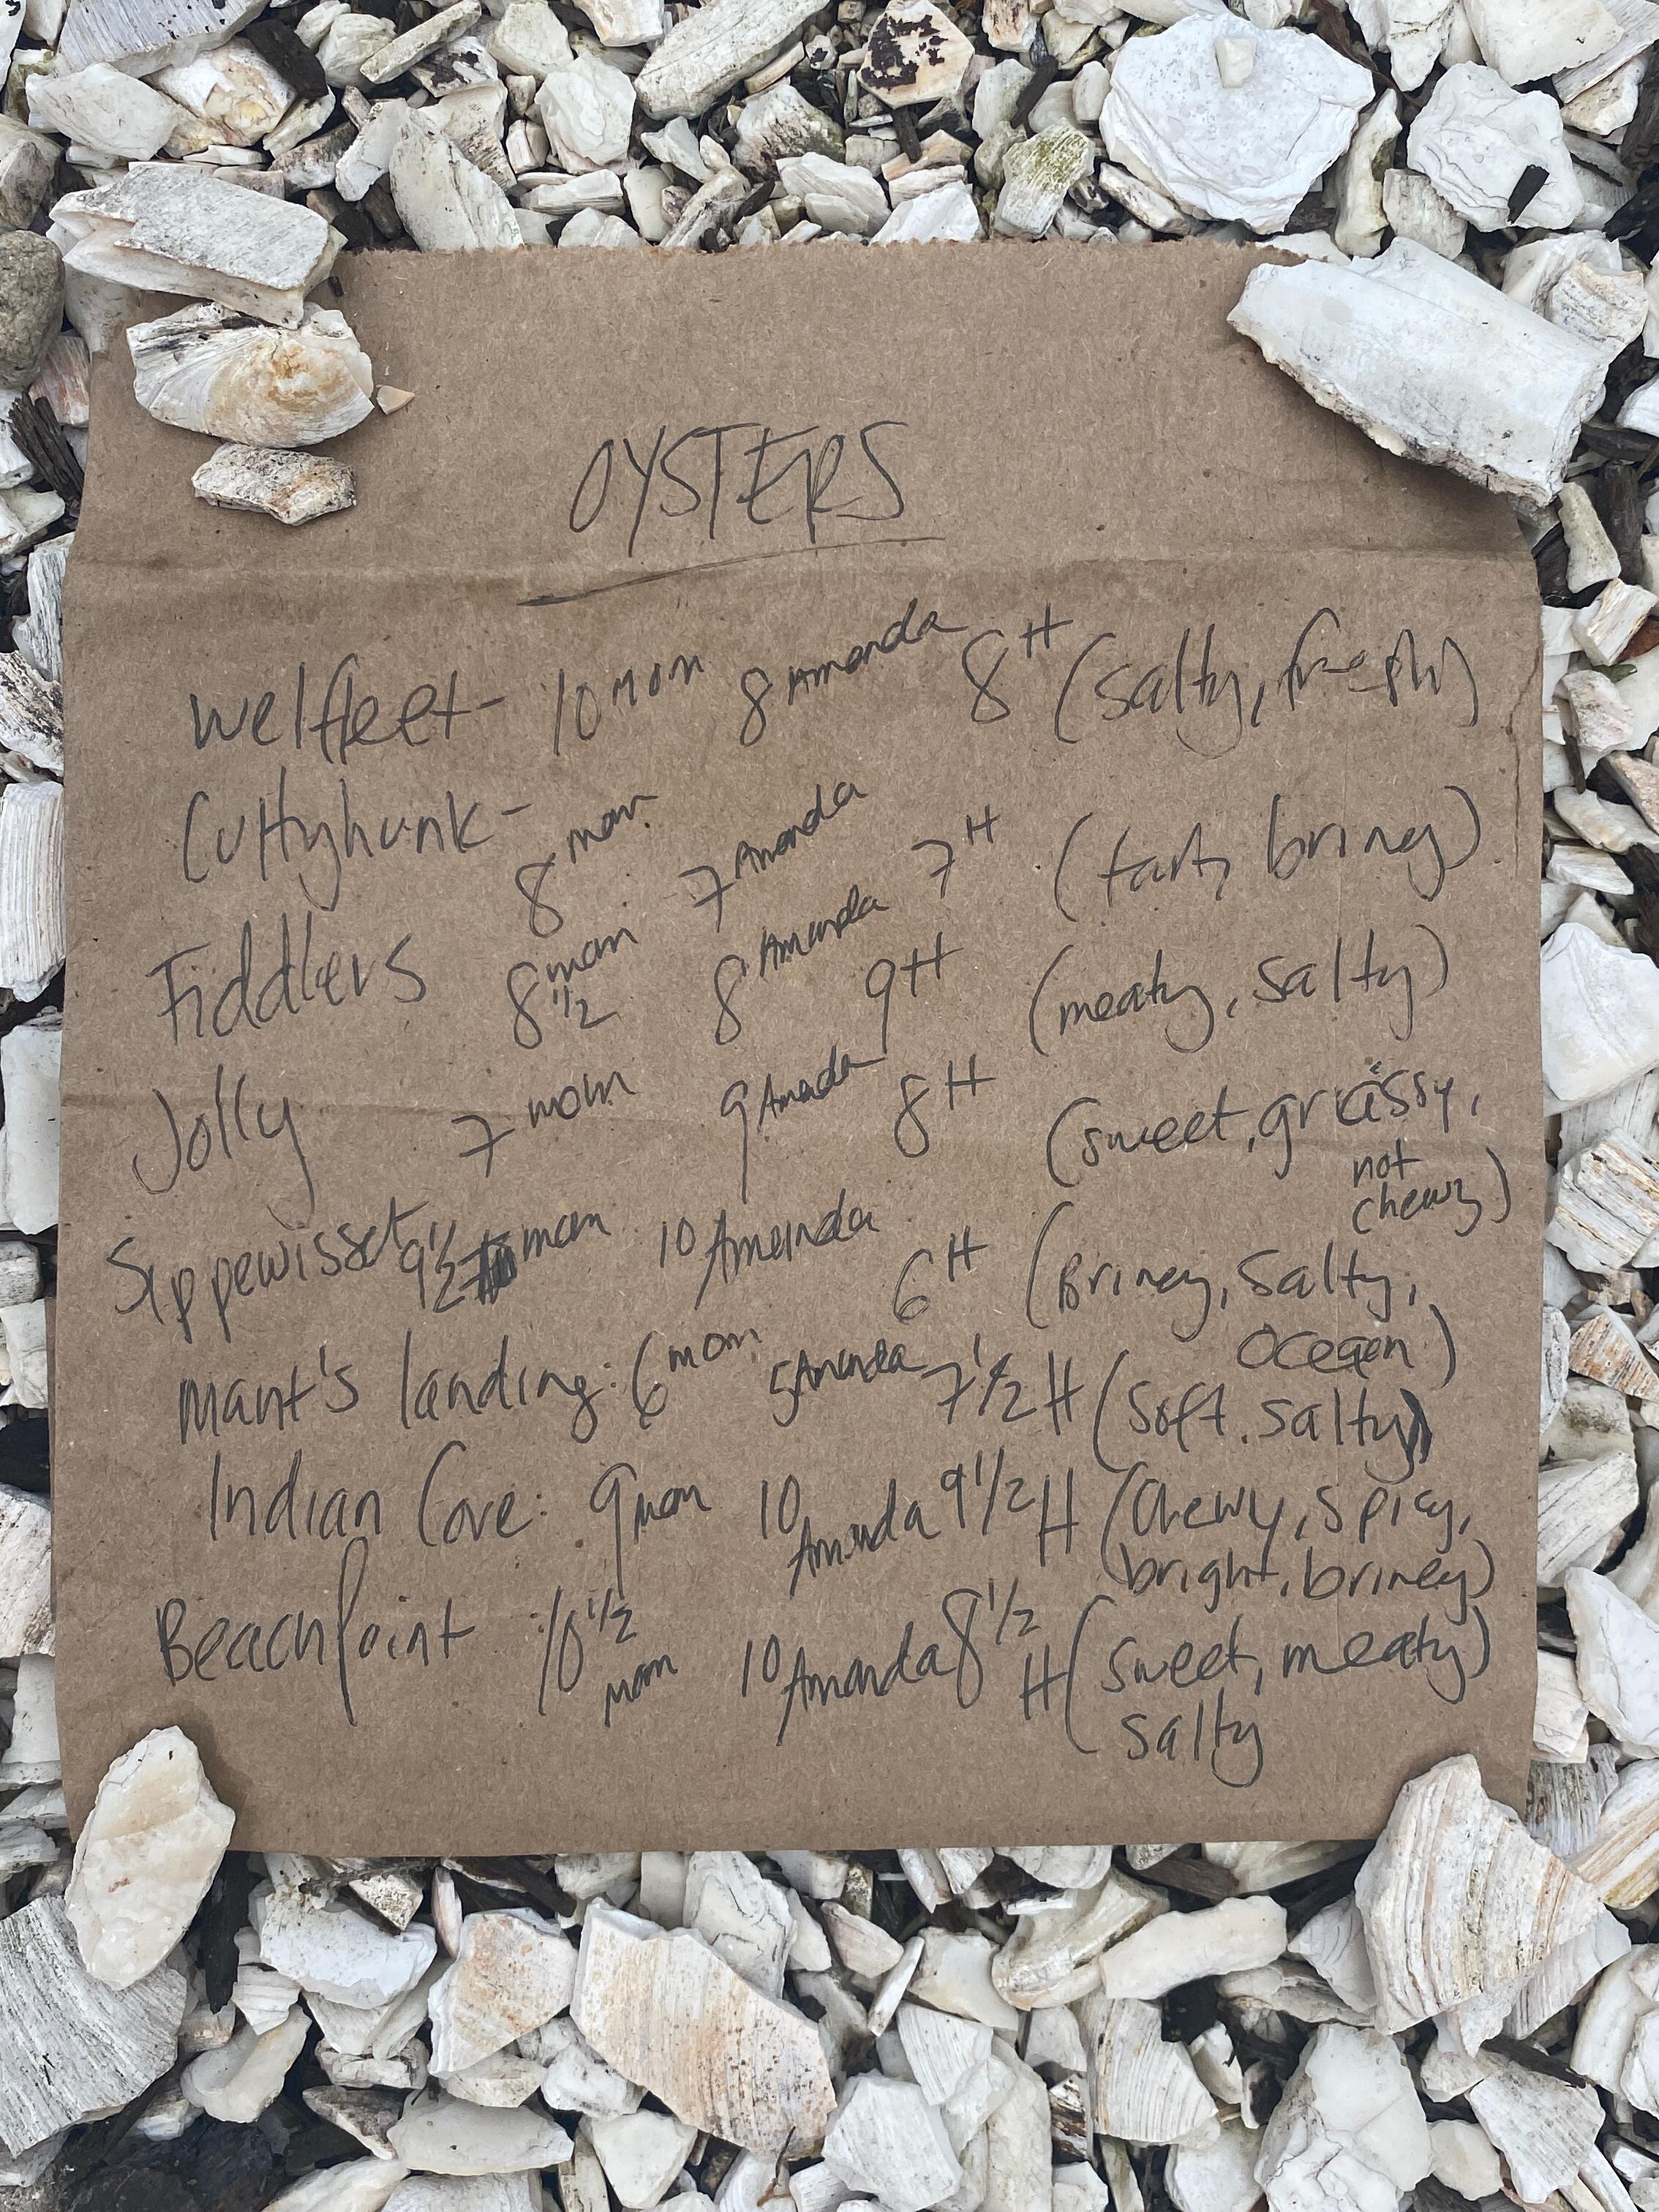 OYSTERS
Welfleet - 10 mom 8 Amanda 8 H (salty, fresh)
Cuttyhunk - 8 mom 7 Amanda 7 H (tart, briney)
Fiddlers 8 1/2 mom 8 Amanda 9 H (meaty, salty)
Jolly 7 mom 9 Amanda 8 H (sweet, grassy,
not
chewy)
Sippewisset 9 1/2 mom 10 Amanda 6 H (Briney, salty,
ocean)
Mant's landing: 6 mom 5 Amanda 7 1/2 H (soft, salty)
Indian Cove: 9 mom 10 Amanda 9 1/2 H (Chewy, spicy,
bright, briney)
Beach Point 10 1/2 mom 10 Amanda 8 1/2 H (sweet, meaty)
salty